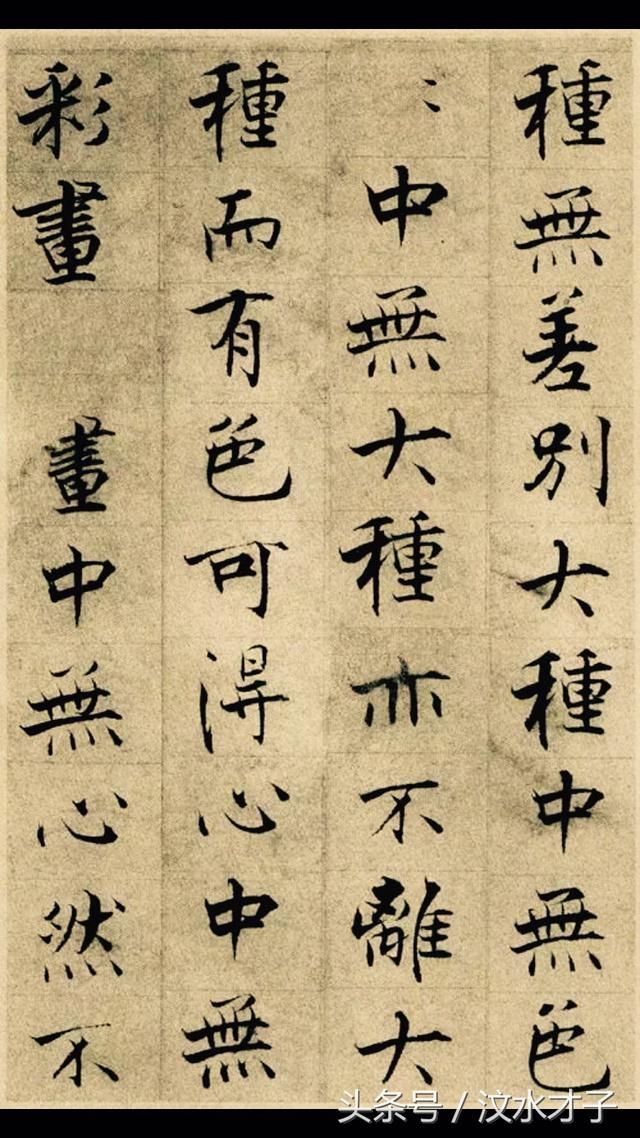 種無差別大種中無色
〻中無大種亦不離大
種而有色可得心中無
彩畫 畫中無心然不
头条号 / 汶水才子